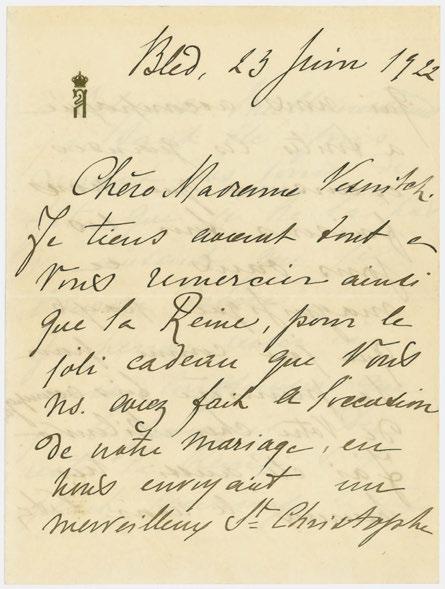 Bled, 23 Juin 1922
Chère Madame Vesnitch.
Je tiens avant tout à
Vous remercier ainsi
que la Reine, pour le
joli cadeau que Vous
ns. avez fait à l'occasion
de notre mariage, en
nous envoyant un
merveilleux St. Christophe